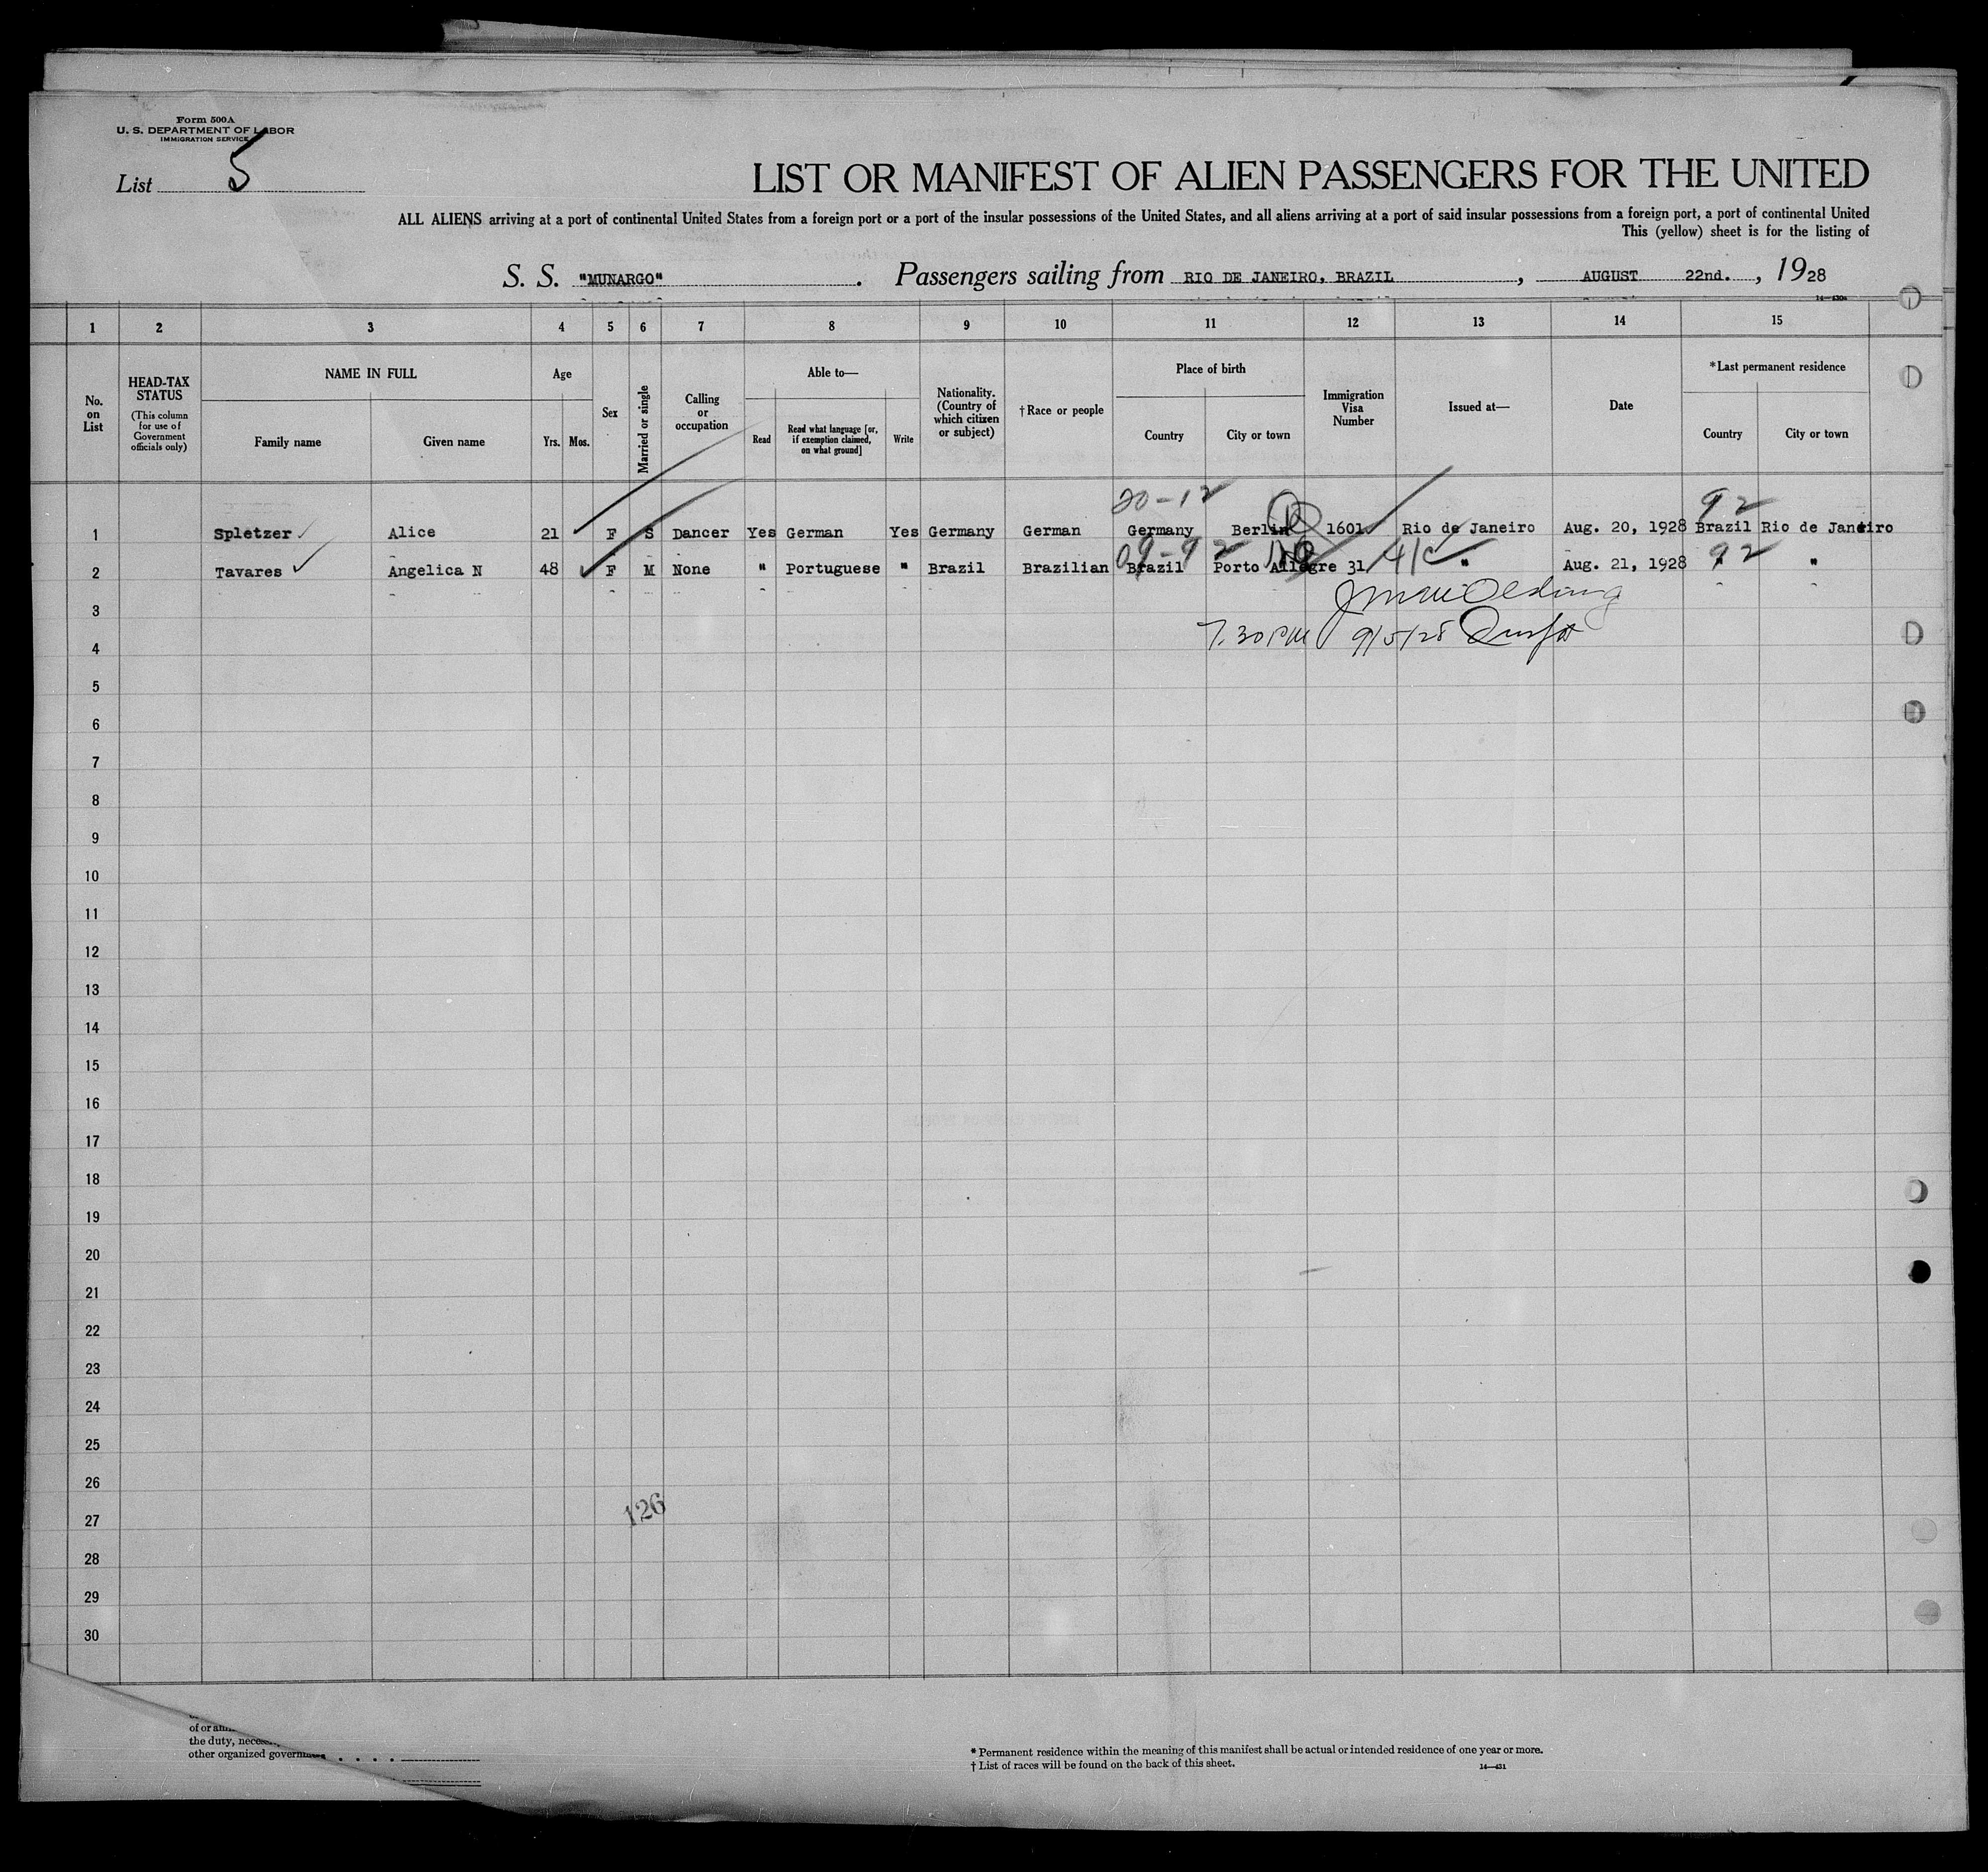 Form 500A
U. S. DEPARTMENT OF LABOR
IMMIGRATION SERVICE
List 5
LIST OR MANIFEST OF ALIEN PASSENGERS FOR THE UNITED
ALL ALIENS arriving at a port of continental United States from a foreign port or a port of the insular possessions of the United States, and all aliens arriving at a port of said insular possessions from a foreign port, a port of continental United
This (yellow) sheet is for the listing of
S. S. "MUNARGO". Passengers sailing from RIO DE JANEIRO, BRAZIL, AUGUST 22nd., 1928
14—430a
1 2 3 4 5 6 7 8 9 10 11 12 13 14 15
No. on List
HEAD-TAX STATUS
(This column for use of Government officials only)
NAME IN FULL
Family name Given name
Age
Yrs. Mos.
Sex
Married or single
Calling or occupation
Able to—
Read Read what language [or, if exemption claimed, on what ground] Write
Nationality. (Country of which citizen or subject)
†Race or people
Place of birth
Country City or town
Immigration Visa Number
Issued at—
Date
*Last permanent residence
Country City or town
20-12 92
1 Spletzer Alice 21 F S Dancer Yes German Yes Germany German Germany Berlin 1601 Rio de Janeiro Aug. 20, 1928 Brazil Rio de Janeiro
09-92 92
2 Tavares Angelica N 48 F M None " Portuguese " Brazil Brazilian Brazil Porto Allegre 31 4/C " Aug. 21, 1928 " "
3
7.30 PM 9/5/28
4
5
6
7
8
9
10
11
12
13
14
15
16
17
18
19
20
21
22
23
24
25
26
126
27
28
29
30
the duty,
other organized
* Permanent residence within the meaning of this manifest shall be actual or intended residence of one year or more.
† List of races will be found on the back of this sheet.
14—431